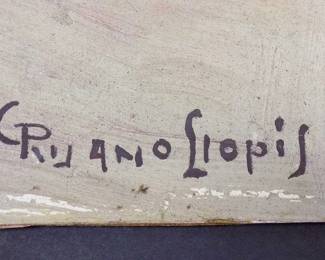 CRUZ ANO Llopis